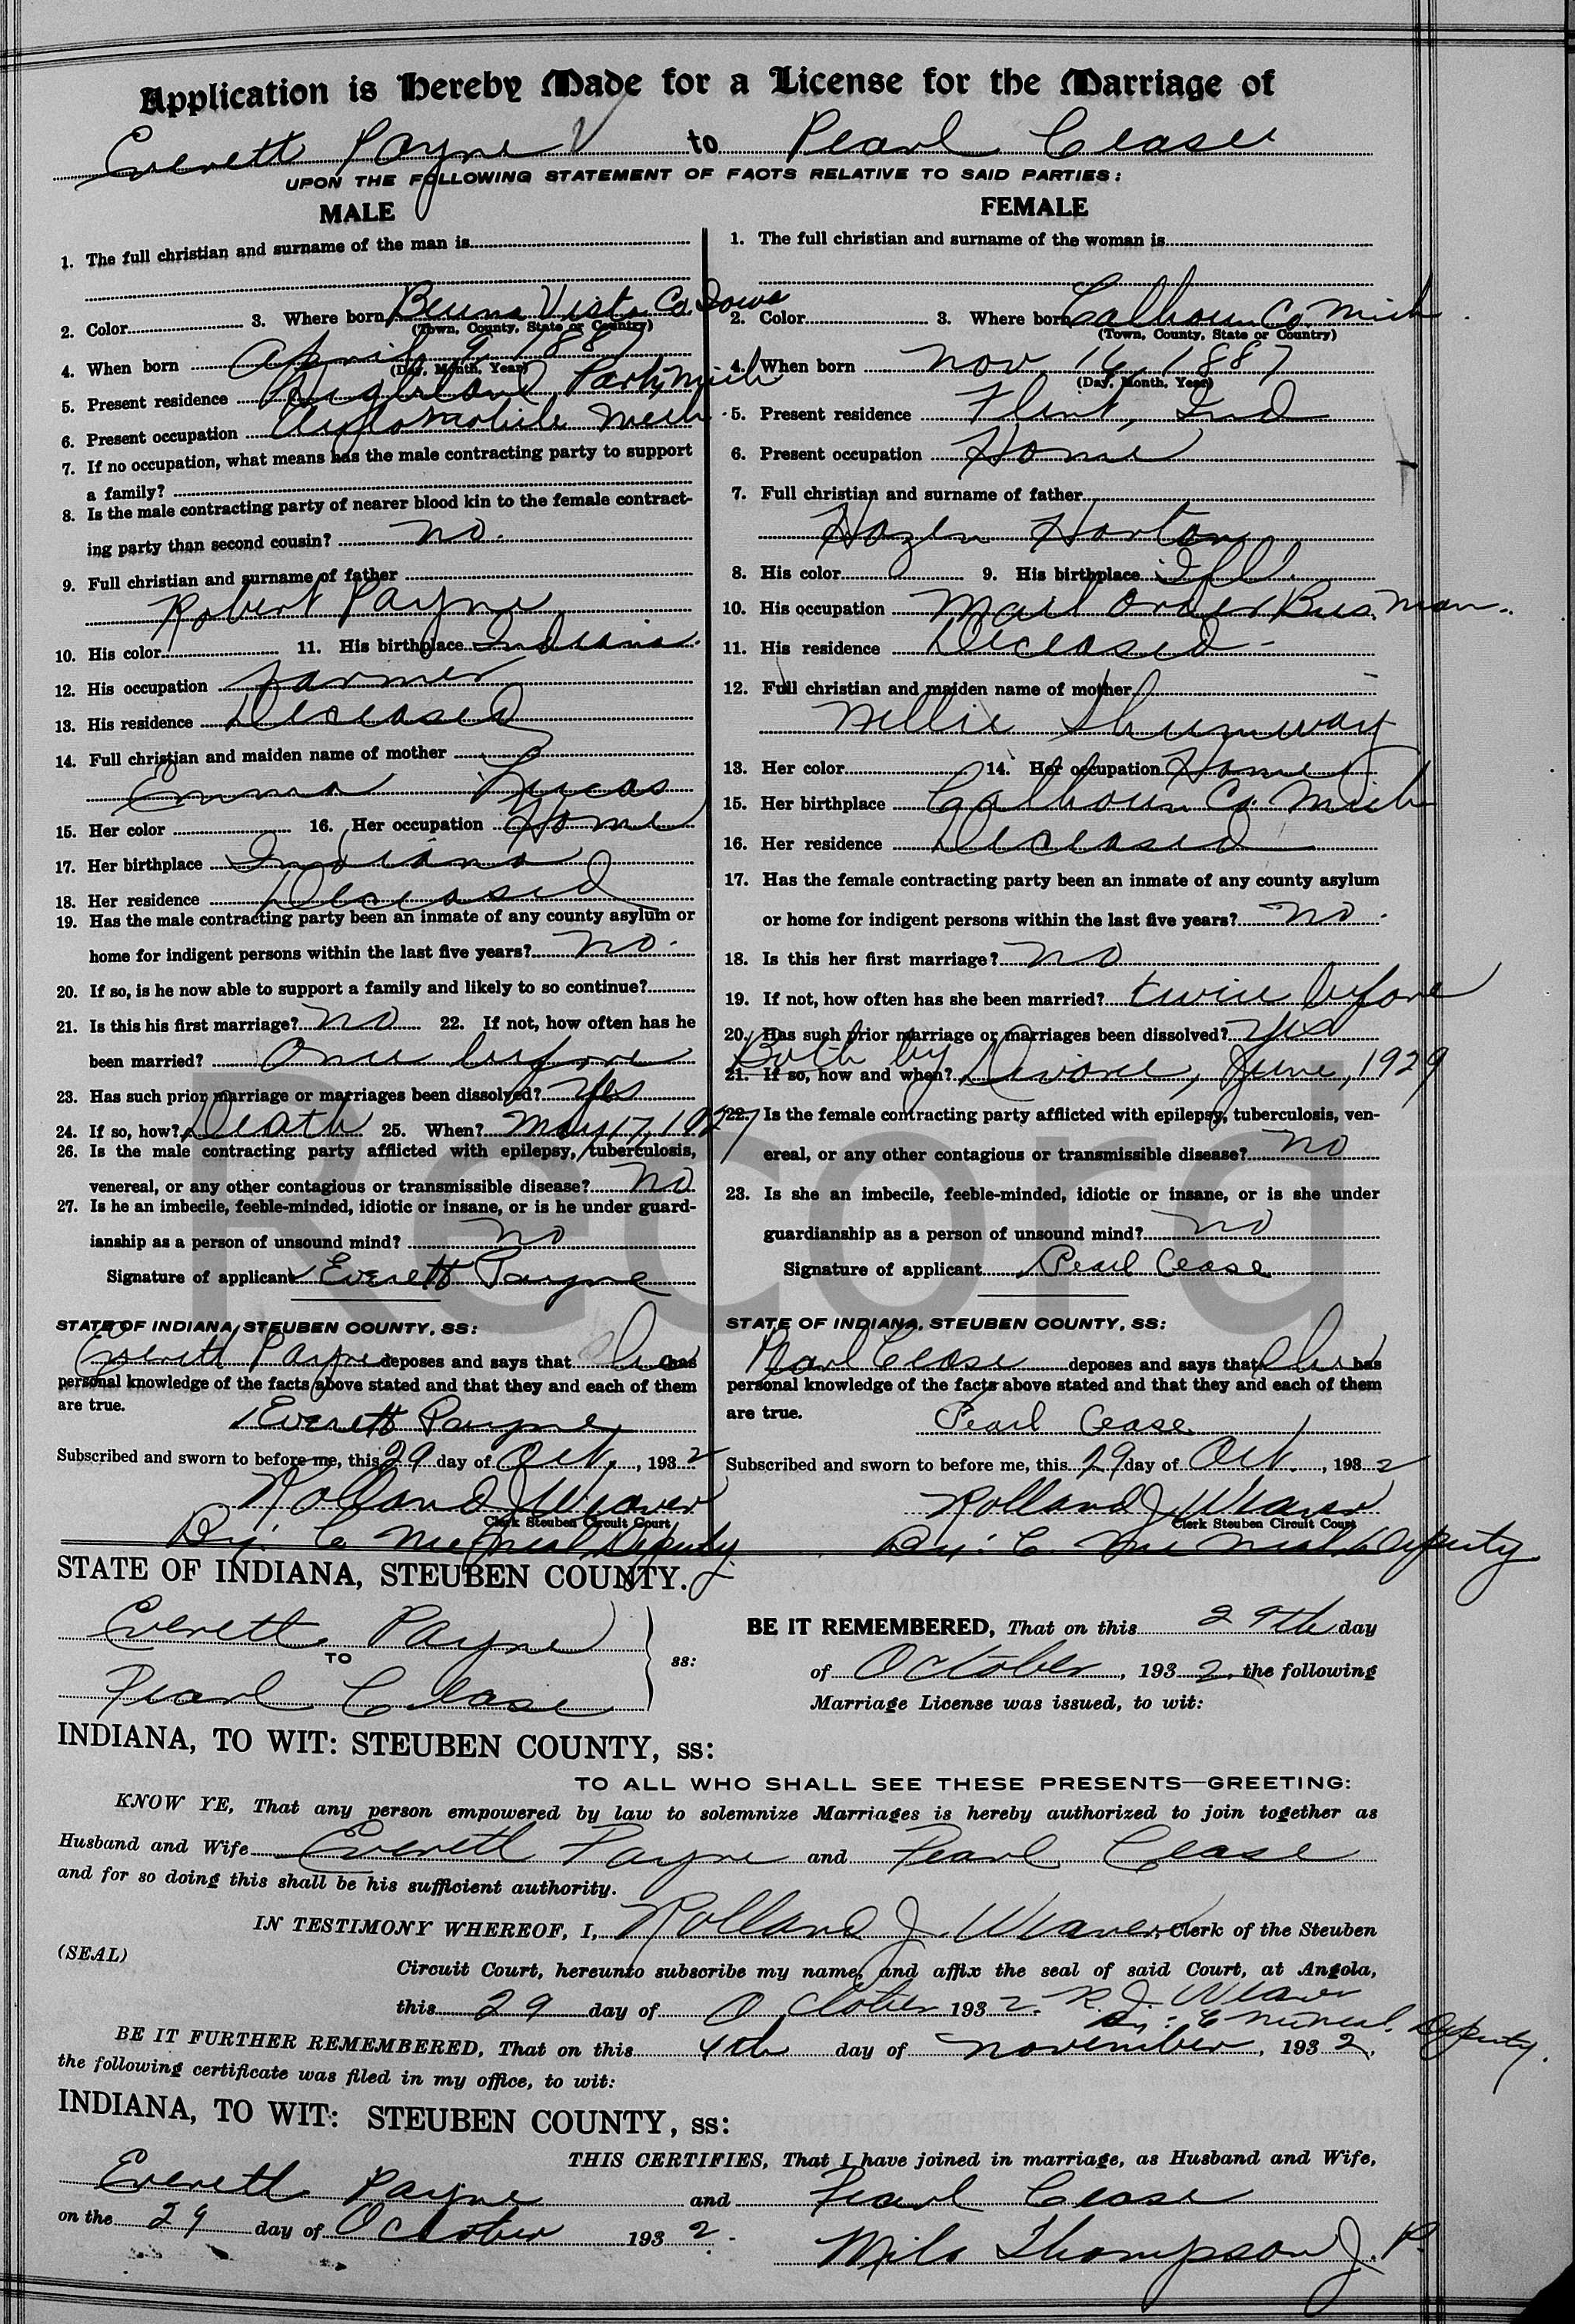 Application is Hereby Made for a License for the Marriage of
Everett Payne to Pearl Cease
UPON THE FOLLOWING STATEMENT OF FACTS RELATIVE TO SAID PARTIES:
MALE
1. The full christian and surname of the man is
2. Color 3. Where born Beuna Vista Co. Iowa
(Town, County, State or Country)
4. When born April 9 1887
(Day, Month, Year)
5. Present residence Highland Park, Mich
6. Present occupation Automobile Mech
7. If no occupation, what means has the male contracting party to support
a family?
8. Is the male contracting party of nearer blood kin to the female contract-
ing party than second cousin? no.
9. Full christian and surname of father
Robert Payne
10. His color 11. His birthplace Indiana.
12. His occupation farmer
13. His residence Deceased
14. Full christian and maiden name of mother
Emma Lucas
15. Her color 16. Her occupation Home
17. Her birthplace Indiana
18. Her residence Deceased
19. Has the male contracting party been an inmate of any county asylum or
home for indigent persons within the last five years? no.
20. If so, is he now able to support a family and likely to so continue?
21. Is this his first marriage? no 22. If not, how often has he
been married? Once before
23. Has such prior marriage or marriages been dissolved? Yes
24. If so, how? Death 25. When? May 17, 1927
26. Is the male contracting party afflicted with epilepsy, tuberculosis,
venereal, or any other contagious or transmissible disease? no
27. Is he an imbecile, feeble-minded, idiotic or insane, or is he under guard-
ianship as a person of unsound mind? no
Signature of applicant Everett Payne
STATE OF INDIANA, STEUBEN COUNTY, SS:
Everett Payne deposes and says that he has
personal knowledge of the facts above stated and that they and each of them
are true.
Everett Payne
Subscribed and sworn to before me, this 29 day of Oct., 1932
Rolland J Weaver
Clerk Steuben Circuit Court
By: C McNeal Deputy
FEMALE
1. The full christian and surname of the woman is
2. Color 3. Where born Calhoun Co Mich
(Town, County, State or Country)
4. When born Nov 16, 1887
(Day, Month, Year)
5. Present residence Flint, Ind
6. Present occupation Home
7. Full christian and surname of father
Hazen Horton
8. His color 9. His birthplace Ill.
10. His occupation Mail Order Bus. Man.
11. His residence Deceased -
12. Full christian and maiden name of mother
Nellie Shumway
13. Her color 14. Her occupation Home
15. Her birthplace Calhoun Co. Mich
16. Her residence Deceased
17. Has the female contracting party been an inmate of any county asylum
or home for indigent persons within the last five years? no.
18. Is this her first marriage? no
19. If not, how often has she been married? twice before
20. Has such prior marriage or marriages been dissolved? Yes
Both by
21. If so, how and when? Divorce, June, 1929
22. Is the female contracting party afflicted with epilepsy, tuberculosis, ven-
ereal, or any other contagious or transmissible disease? no
23. Is she an imbecile, feeble-minded, idiotic or insane, or is she under
guardianship as a person of unsound mind? no
Signature of applicant Pearl Cease
STATE OF INDIANA, STEUBEN COUNTY, SS:
Pearl Cease deposes and says that she has
personal knowledge of the facts above stated and that they and each of them
are true.
Pearl Cease
Subscribed and sworn to before me, this 29 day of Oct., 1932
Rolland J. Weaver
Clerk Steuben Circuit Court
By: C. McNeal Deputy
Record
STATE OF INDIANA, STEUBEN COUNTY.
Everett Payne
TO
Pearl Cease
ss:
BE IT REMEMBERED, That on this 29th day
of October, 1932, the following
Marriage License was issued, to wit:
INDIANA, TO WIT: STEUBEN COUNTY, ss:
TO ALL WHO SHALL SEE THESE PRESENTS—GREETING:
KNOW YE, That any person empowered by law to solemnize Marriages is hereby authorized to join together as
Husband and Wife Everett Payne and Pearl Cease
and for so doing this shall be his sufficient authority.
IN TESTIMONY WHEREOF, I, Rolland J. Weaver, Clerk of the Steuben
(SEAL)
Circuit Court, hereunto subscribe my name, and affix the seal of said Court, at Angola,
this 29 day of October 1932. R. J. Weaver
By: C McNeal. Deputy.
BE IT FURTHER REMEMBERED, That on this 4th day of November, 1932,
the following certificate was filed in my office, to wit:
INDIANA, TO WIT: STEUBEN COUNTY, ss:
THIS CERTIFIES, That I have joined in marriage, as Husband and Wife,
Everett Payne and Pearl Cease
on the 29 day of October 1932.
Milo Thompson J. P.